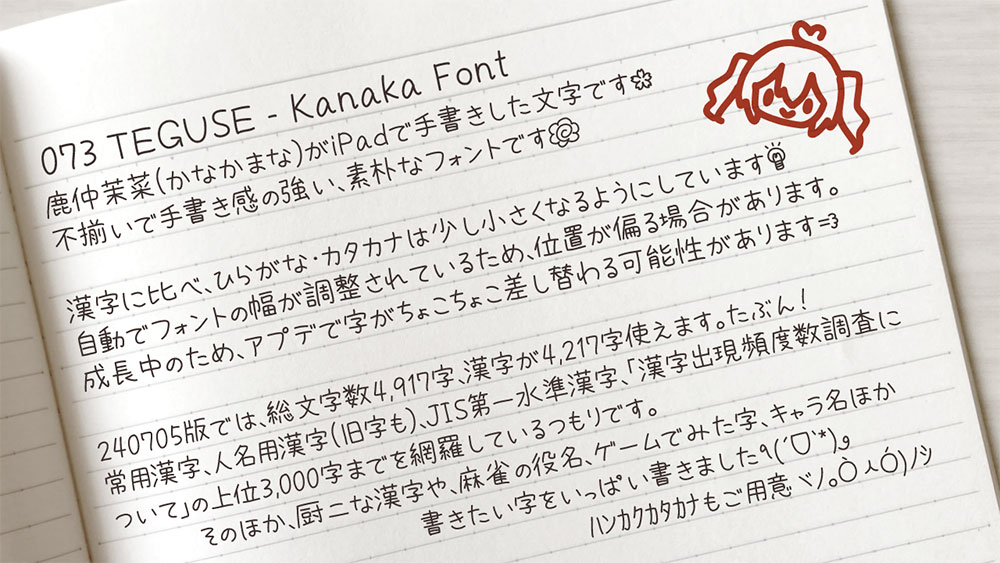 073 TEGUSE - Kanaka Font
鹿仲茉菜(かなかまな)がiPadで手書きした文字です
不揃いで手書き感の強い、素朴なフォントです
漢字に比べ、ひらがな・カタカナは少し小さくなるようにしています
自動でフォントの幅が調整されているため、位置が偏る場合があります。
成長中のため、アプデで字がちょこちょこ差し替わる可能性があります=3
240705版では、総文字数4,917字、漢字が4,217字使えます。たぶん!
常用漢字、人名用漢字(旧字も)、JIS第一水準漢字、「漢字出現頻度数調査に
ついて」の上位3,000字までを網羅しているつもりです。
そのほか、厨二な漢字や、麻雀の役名、ゲームでみた字、キャラ名ほか
書きたい字をいっぱい書きました٩(ˊᗜˋ*)و
ﾊﾝｶｸｶﾀｶﾅもご用意ヾﾉ｡ÒㅅÓ)ﾉｼ